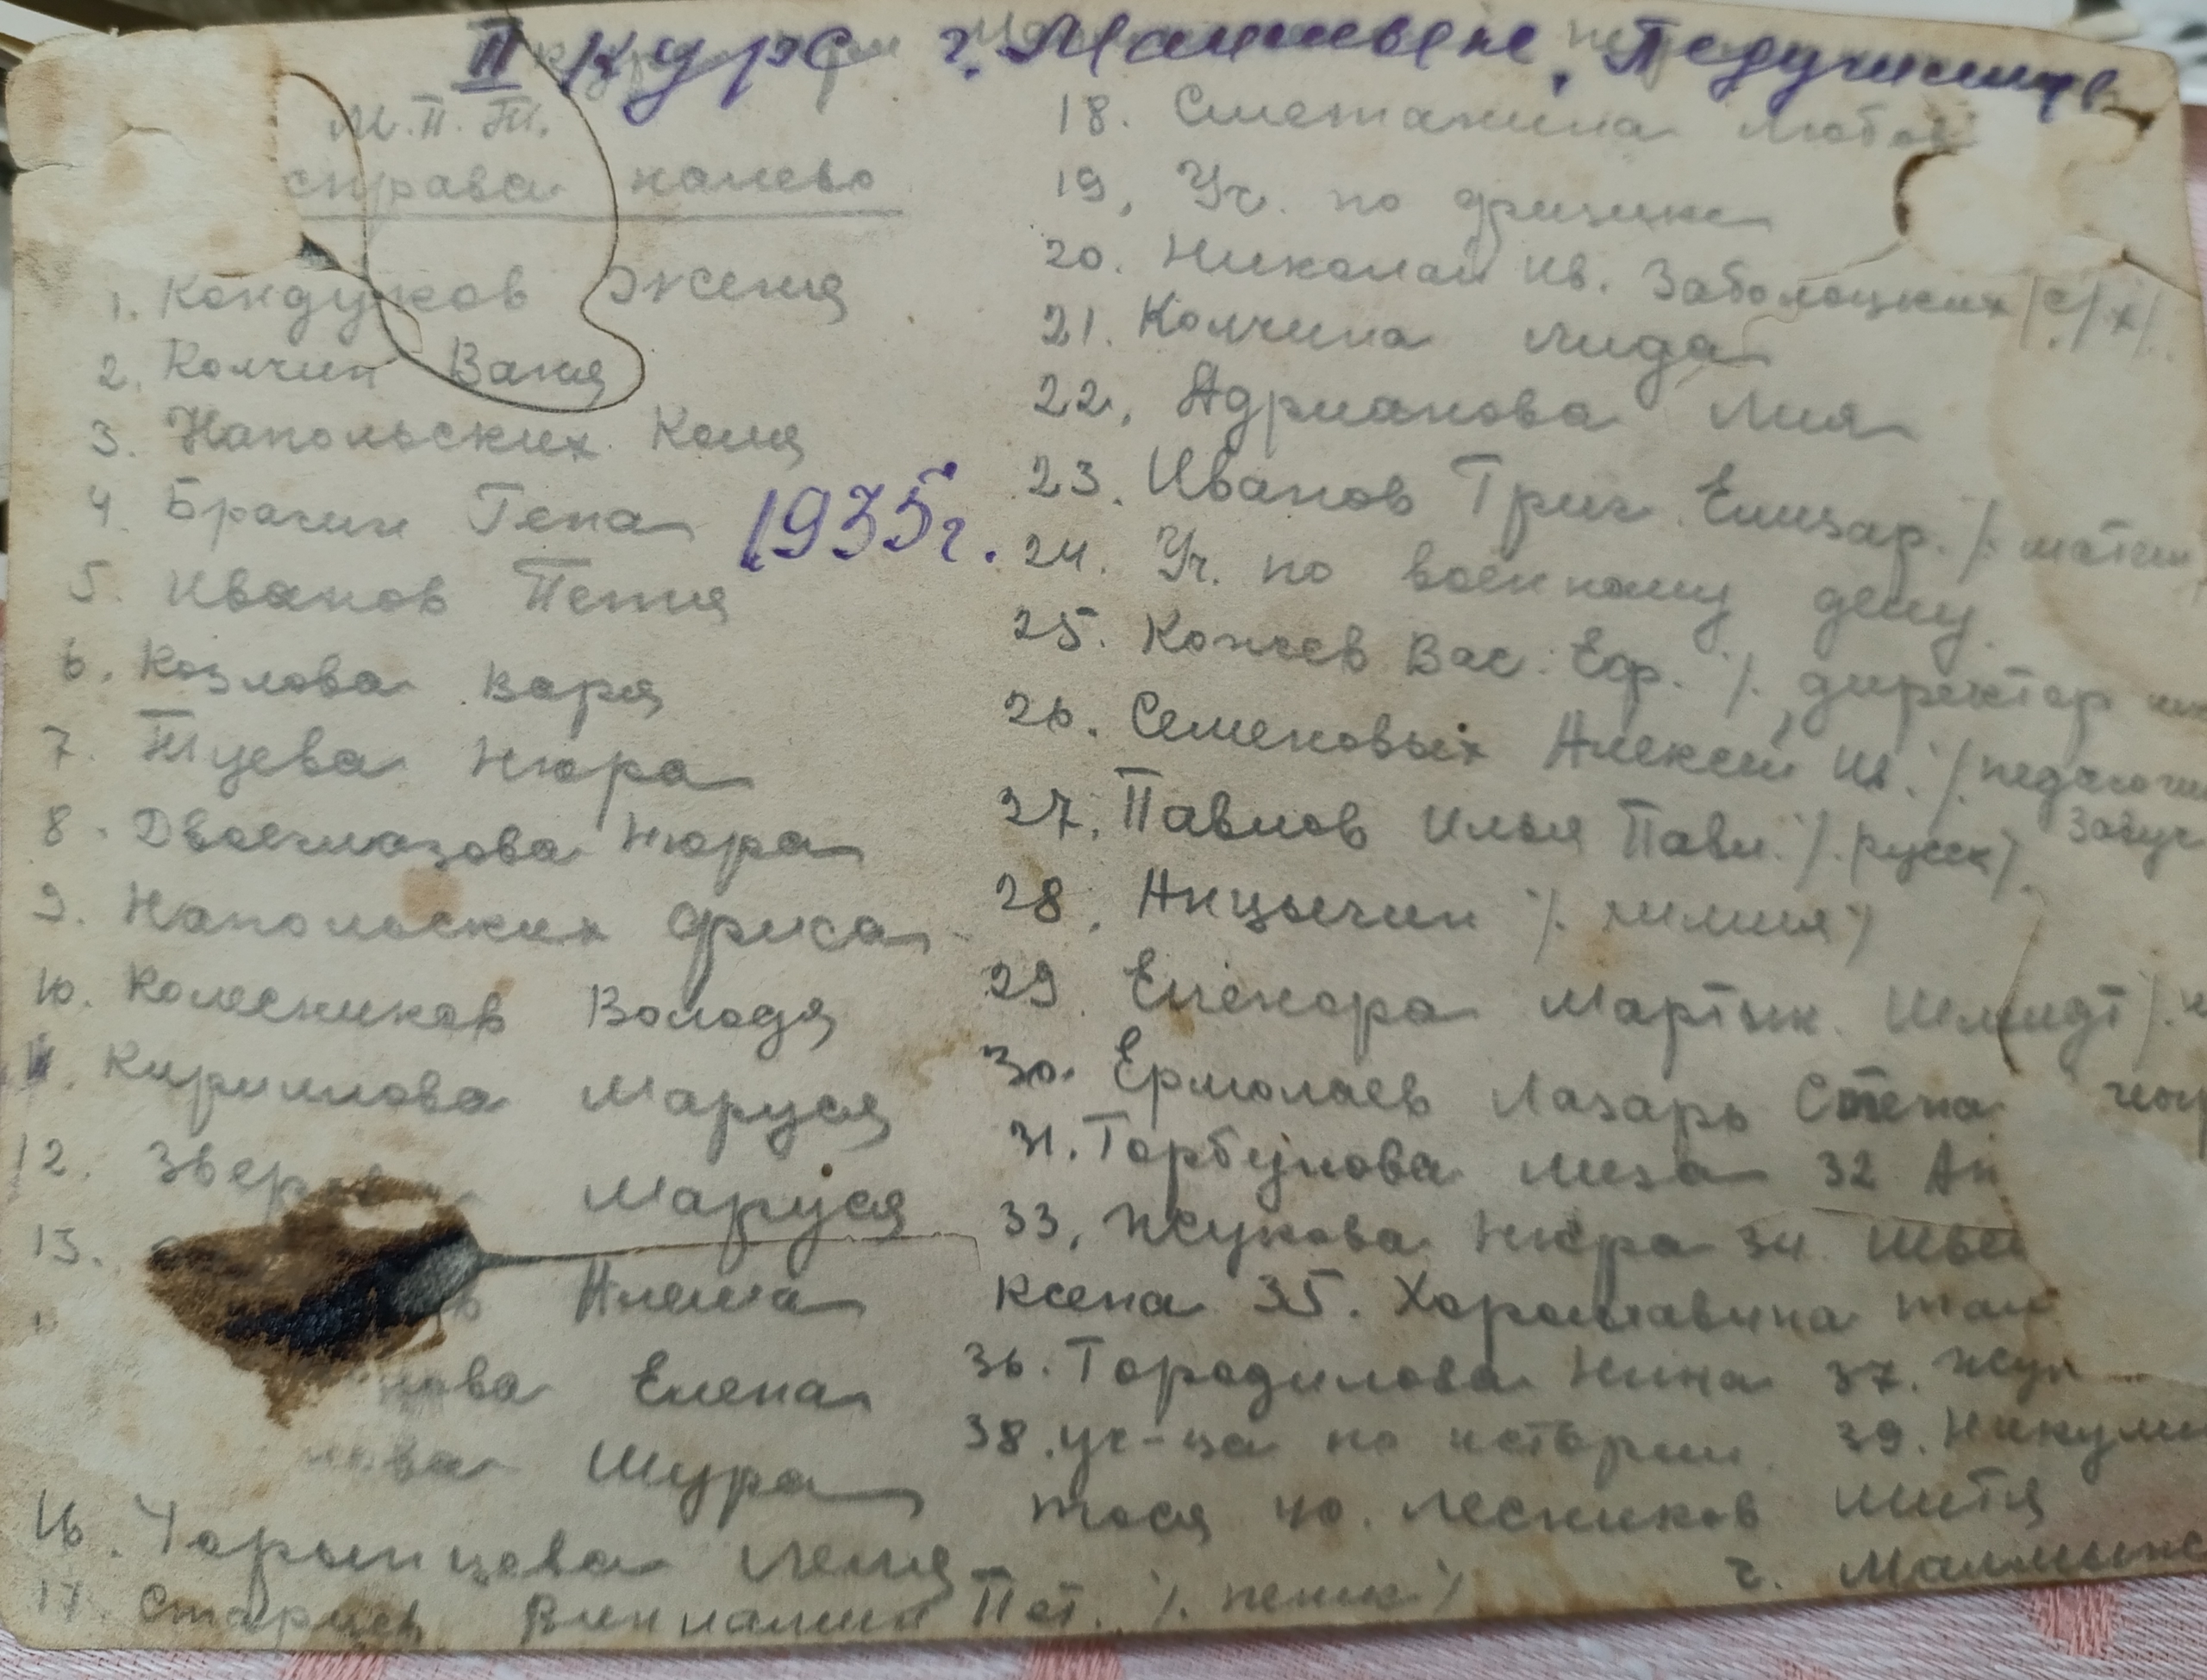 II курс г. Малмыже, Педучилище
М.П.Т.
справа налево
1. Кондуков Женя
2. Колчин Ваня
3. Напольских Коля
4. Брагин Гена
1935г.
5. Иванов Петя
6. Козлова Варя
7. Туева Нюра
8. Двоеглазова Нюра
9. Напольских Фиса
10. Колесников Володя
11. Кириллова Маруся
12. Маруся
13.
Алеша
нова Елена
лова Шура
16. Чарынцева Леля
17. Старцев Вениамин Пет. /. пение/
18. Сметанина Любовь
19. Уч. по физике
20. Николай Ив. Заболоцких /с/х/.
21. Колчина Лида
22. Адрианова Лия
23. Иванов Григ. Елизар. /. матем
24. Уч. по военному делу.
25. Копчев Вас. Еф. /. директор
26. Семеновых Алексей Ив. /. педагогик
завуч
27. Павлов Илья Павл. /. русск/.
28. Анцыгин /. химия/
29 Еленора Мартын. Шмидт /. н
30. Ермолаев Лазарь Степа геогр
31. Горбунова Лиза 32 Ан
33. Жукова Нюра 34
ксена 35. Хорошавина
36. Городилова Нина 37. Жук
38. уч-ца по истории 39. Никули
Тося 40. Лесников Митя
г. Малмыж